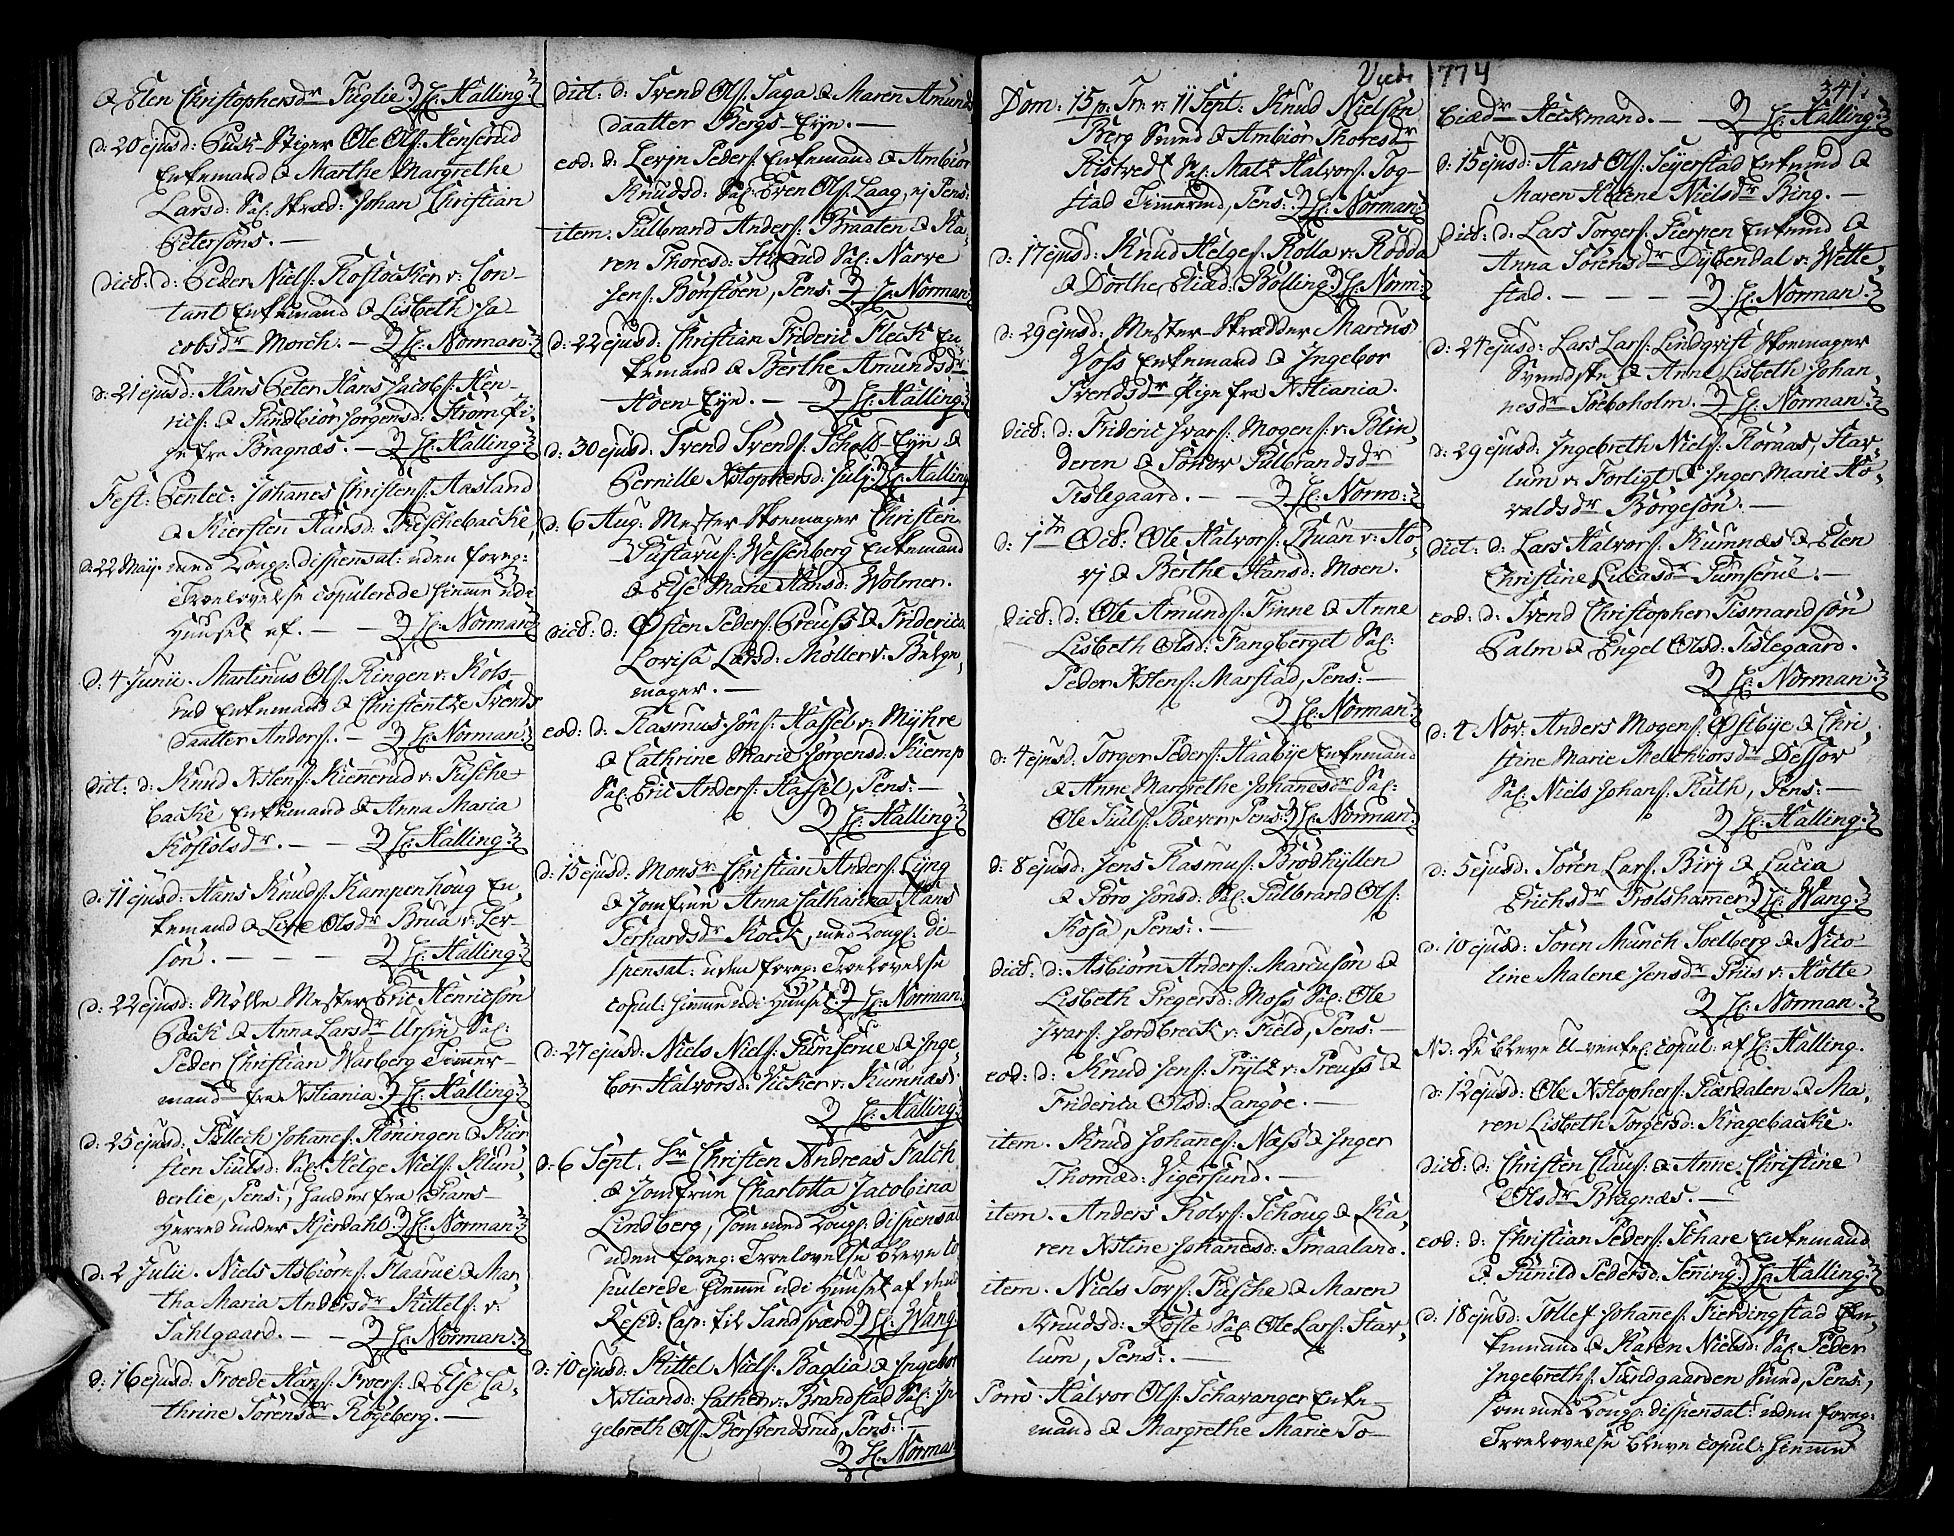 & Elen Christophersdr Fuglie. H: Halling.
d: 20 ejusd: Buch Stiger Ole Ols: Henserud
Enkemand & Marthe Margrethe
Larsd: Sal. Skræd: Johan Christian
Petersöns.
dict: d: Peder Niels: Kostocken v: Con-
tant Enkemand & Lisbeth Ja-
cobsdr Morch. H: Norman.
d: 21 ejusd: Hans Peter Hans Jacobs: Hen-
rics: & Gundbior Jorgensd: Strøm Pi-
ge fra Bragnæs. H: Halling.
Fest: Pentec: Johanes Christens: Aasland
& Kiersten Hansd: Feschebache
d: 22 Maij med Kongl: dispensat: uden foreg:
Troelovelse copulerede hiemme udi
Huuset af. H: Norman.
d: 4 Junii. Martinus Ols: Ringen v: Kols-
rud Enkemand & Christentze Svends
daatter Anders: H: Norman.
dict: d: Knud Xstens: Kienerud v: Fusche-
backe Enkemand & Anna Maria
Kostolsdr. H: Halling.
d: 11 ejusd: Hans Knuds: Kampenhoug En-
kemand & Live Olsdr Brua v: Ler-
sön. H: Halling.
d: 22 ejusd: Mølle Mester Eric Henricsøn
Back & Anna Larsdr Ursin Sal:
Peder Christian Warberg Timer-
mand fra Xstiania H: Halling.
d: 25 ejusd: Gullech Johanes: Køningen & Kier
sten Juulsd: Sal: Helge Niels: Klun-
derlie, Pens:, hand er fra Grans-
Herred under Hierdahl. H: Norman.
d: 2 Julii. Niels Asbiørns: Flaarue & Mar-
tha Maria Andersdr Kittels: v:
Sahlgaard. H: Norman.
d: 16 ejusd: Froede Hans: Froers: & Else Ca-
thrine Sörensdr Rogeberg.
dict: d: Svend Ols: Saga & Maren Amunds
daatter Bergs-Eyn.
eod: d: Levjn Peders: Enkemand & Ambior
Knudsd: Sal: Even Ols: Laag, ej Pens:
item. Gulbrand Anders: Braaten & Ka-
ren Thoresd: Sal: Narve
Jens: Bonstöen, Pens: H: Norman.
d: 22 ejusd: Christian Frideric Fleck En-
kemand & Berthe Amundsdr
Hoen Eyn. H: Halling.
d: 30 ejusd: Svend Svends: Scholt-Eyn &
Pernille Xstophersd: Julj. H: Halling
d: 6 Aug: Mester Skoemager Christen
Gustavus: Wessenberg Enkemand
& Else Marie Hansd: Wolmer.
dict: d: Østen Peders: Preuss & Friderica
Lovisa Larsd: Møller v: Belge-
mager.
eod: d: Rasmus Jöns: Hassel v: Myhre
& Cathrine Marie Jörgensd: Kiemp
Sal: Eric Anders: Hassel, Pens:
H: Halling.
d: 15 ejusd: Monsr Christian Anders: Lyng
& Jomfrue Anna Catharina Hans
Gerhardsdr Kock, med Kongl: di-
spensat: uden foreg: Troelovelse
copul: hiemme udi Huuset. H: Norman.
d: 27 ejusd: Niels Niels: Gumserue & Inge-
bor Halvorsd: Vicker v: Kumnæs.
H: Halling.
d: 6 Sept: Sr Christen Andreas Falch
& Jomfrue Charlotta Jacobina
Lindberg, som med Kongl: dispensat
uden foreg: Troelovelse bleve Co-
pulerede hiemme udi Huuset af
Resid: Cap: til Sandsværd H: Wang.
d: 10 ejusd: Kittel Niels: Baglia & Ingebor
Xstiansd: Cathed v: Brandstad Sal: In-
gebreth Ols: Bersvendsrud, Pens:
H: Norman
Vide 1774
341.
Dom: 15 p: Tr: v: 11 Sept: Knud Nielsön
Berg Svend & Ambior Thoresdr
Ristvedt Sal: Matz Halvors: Tog-
stad Timermd, Pens: H: Norman.
d: 17 ejusd: Knud Helges: Kolla v: Rodda
& Dorthe Eliæd: Bolling. H: Norm:
d: 29 ejusd: Mester Skrædder Marcus
Voss Enkemand & Ingebor
Svendsdr Pige fra Xstiania.
dict: d: Frideric Ivars: Mogens: v: Blin-
deren & Sønov Gulbrandsdr
Tislegaard. H: Norm:
d: 1te Oct: Ole Halvors: Buan v: Ho-
vj & Berthe Hansd: Moen.
dict: d: Ole Amunds: Finne & Anne
Lisbeth Olsd: Fangberget Sal:
Peder Xstens: Marstad, Pens:
H: Norman.
d: 4 ejusd: Torger Peders: Haabye Enkemand
& Anne Margrethe Johanesdr Sal:
Ole Juuls: Bæver, Pens: H: Norman.
d: 8 ejusd: Jens Rasmus: Brødhyllen
& Goro Jönsd: Sal: Gulbrand Ols:
Kosa, Pens:
dict: d: Asbiørn Anders: Marcusön &
Lisbeth Gregersd: Moss Sal: Ole
Ivars: Jordbreck v: Field, Pens:
eod: d: Knud Jens: Prytz v: Preuss &
Friderica Olsd: Langöe.
item. Knud Johanes: Næss & Inger
Thomæd: Vigersund.
item. Anders Rolvs: Schoug & Ka-
ren Xstine Johanesd: Smaaland.
item. Niels Tors: Fusche & Maren
Knudsd: Köste Sal: Ole Lars: Star-
lum, Pens:
Porro. Halvor Ols: Schavanger Enke-
mand & Margrethe Marie To-
biædr Heckmand. H: Halling.
d: 15 ejusd: Hans Ols: Segerstad Enkemd &
Maren Helene Nielsdr Bing.
dict: d: Lars Torgers: Gierpen Enkemd &
Anna Sörensdr Dybendal v: Wette-
stad. H: Norman.
d: 24 ejusd: Lars Lars: Lindqvist Skoemager
Svendste & Anne Lisbeth Johan-
nesdr Soeboholm. H: Norman.
d: 29 ejusd: Ingebreth Niels: Kornæs, Star-
lum v: Forligt & Inger Marie Ho-
veldsdr Börgesön.
dict: d: Lars Halvors: Kumnæs & Elen
Christine Lucasdr Gumserue.
eod: d: Svend Christopher Tismandsön
Palm & Engel Olsd: Tislegaard.
H: Norman.
d: 2 Nov: Anders Mogens: Østbye & Chri-
stine Marie Melchiorsdr Dessor
Sal: Niels Johans: Ruth, Pens:
H: Halling.
d: 5 ejusd: Sören Lars: Birj & Lucia
Erichsdr Trolshamer H: Wang.
d: 10 ejusd: Sören Munch Soelberg & Nico-
line Malene Jensdr Priis v: Holte
H: Norman.
N: De bleve U-ventel: copul: af H: Halling.
d: 12 ejusd: Ole Xstophers: Giærdalen & Ma-
ren Lisbeth Torgersd: Kragebacke.
dict: d: Christen Claus: & Anne Christine
Olsdr Bragnæs.
eod: d: Christian Peders: Schare Enkemand
& Gunild Pedersd: Senning. H: Halling.
d: 18 ejusd: Tollef Johanes: Fierdingstad En-
kemand & Karen Nielsd: Sal: Peder
Ingebreths: Sundgaarden Svend, Pens:,
som med Kongl: dispensat: uden foreg:
Troelovelse bleve copul: hiemme